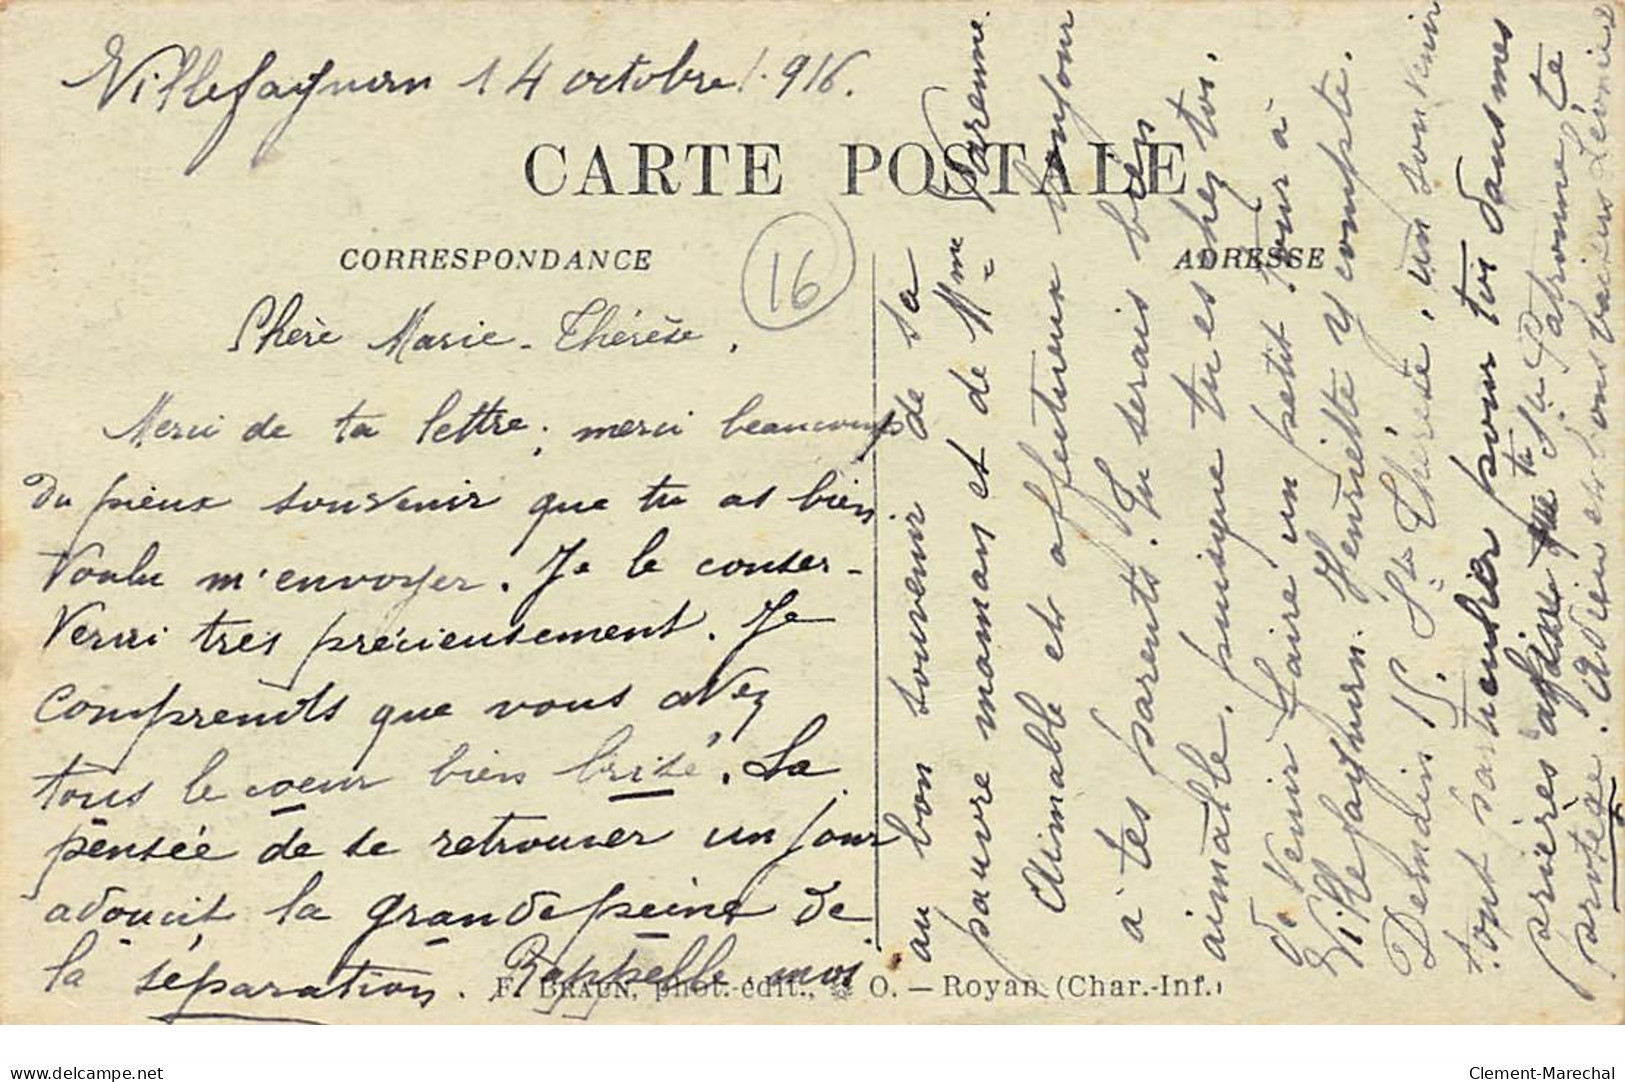 Villefagnan 14 octobre 1916.
CARTE POSTALE
CORRESPONDANCE
ADRESSE
16
Chère Marie-Thérèse,
Merci de ta lettre, merci beaucoup
du pieux souvenir que tu as bien
voulu m'envoyer. Je le conser-
verai très précieusement. Je
comprends que vous avez
tous le cœur bien brisé. La
pensée de se retrouver un jour
adoucit la grande peine de
la séparation. Rappelle-moi
au bon souvenir de ta
pauvre maman et de Mme Varenne.
Aimable et affectueux bonjour
à tes parents. Tu serais bien
aimable, puisque tu es chez toi,
de venir faire un petit tour à
Villefagnan. Henriette y compte.
Demain 15, Ste Thérèse, un souvenir
tout particulier pour toi dans mes
prières afin que ta Ste Patronne te
protège. Adieu et bons baisers Léonie
F. BRAUN, phot.-édit., O. — Royan (Char.-Inf.)
delcampe.net
Clement-Marechal